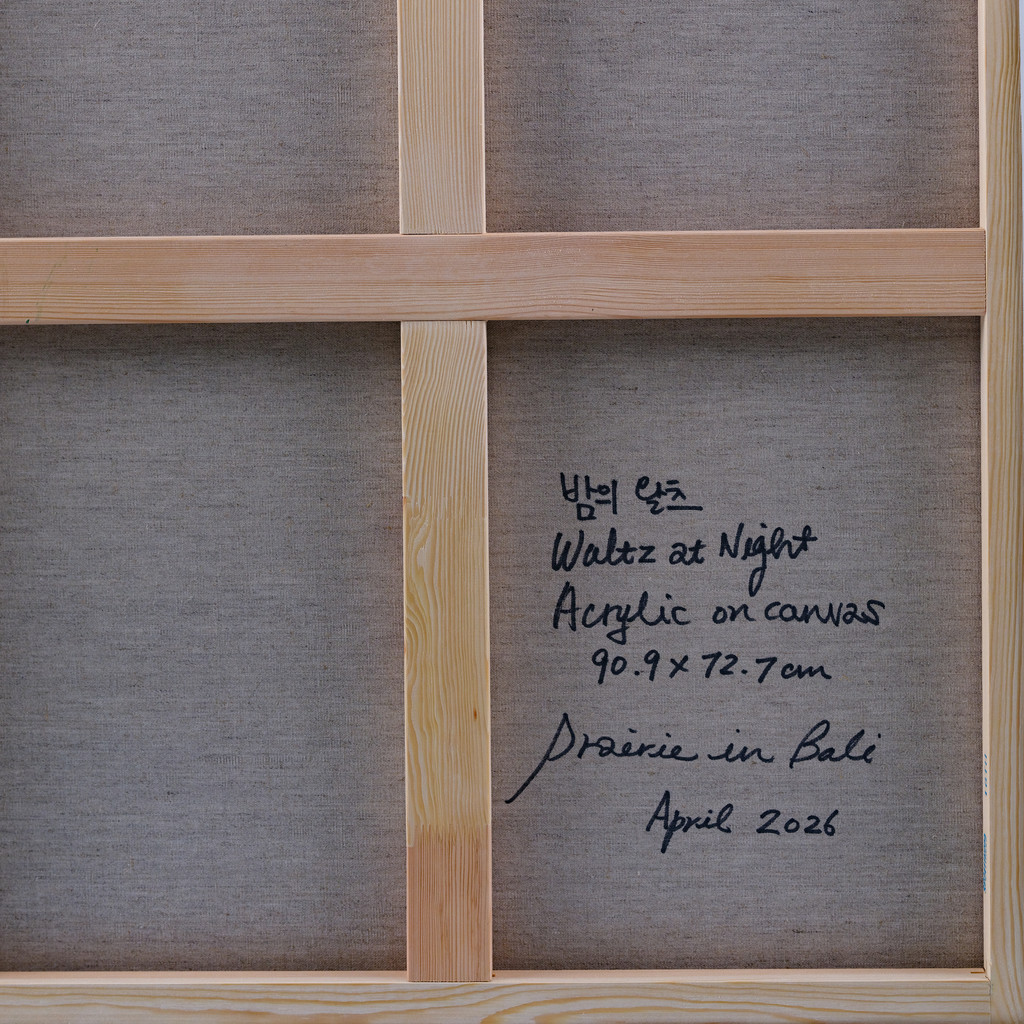 밤의 왈츠
Waltz at Night
Acrylic on canvas
90.9 x 72.7 cm
Prairie in Bali
April 2026